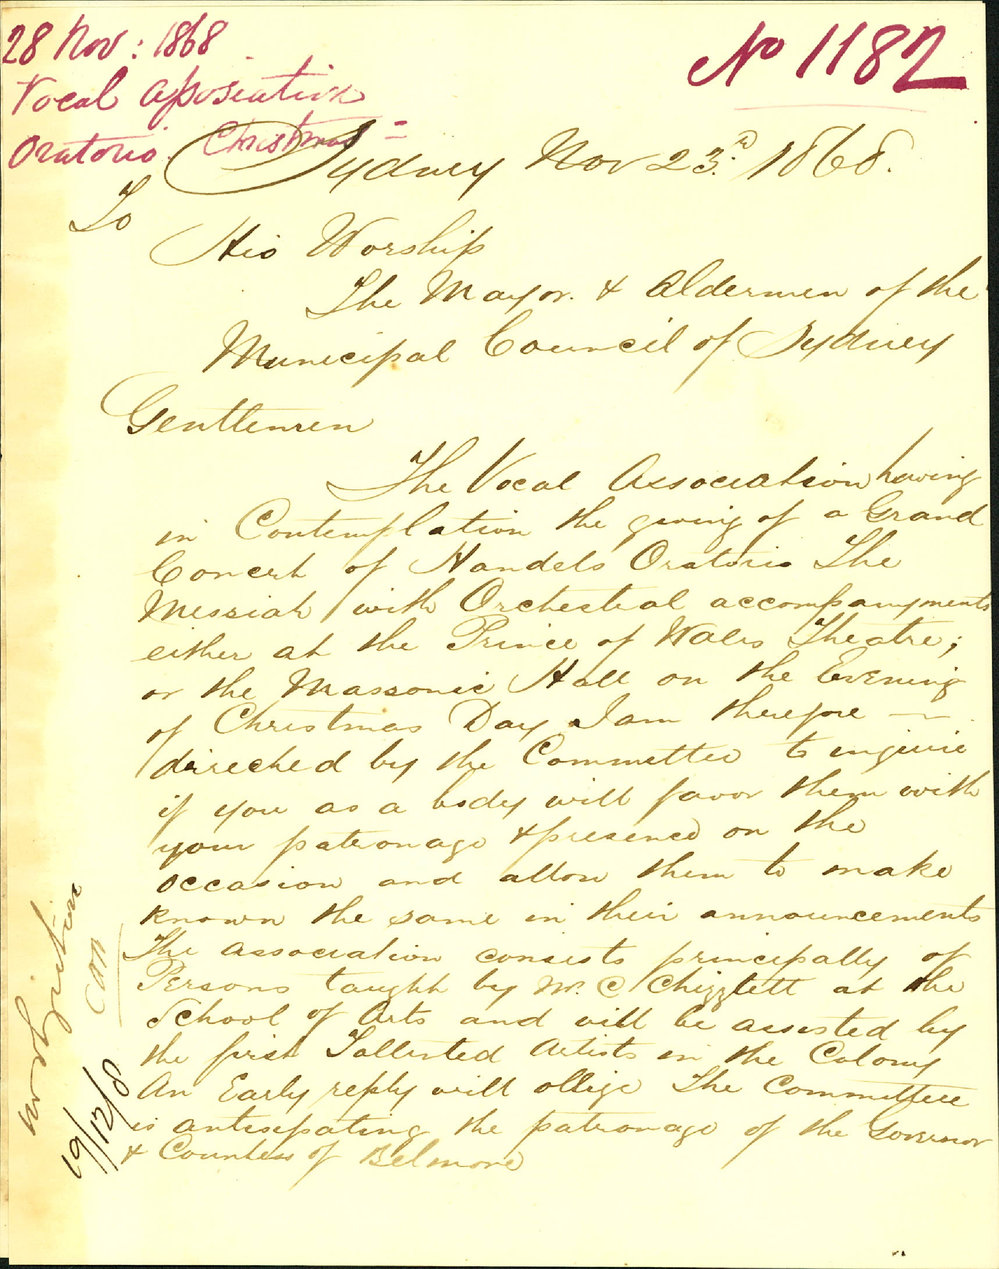 28 Nov: 1868
Vocal Association
Oratorio Christmas =
No 1182
Sydney Nov 23.d 1868.
To
His Worship
The Mayor. & Aldermen of the
Municipal Council of Sydney
Gentlemen
The Vocal Association having
in Contemplation the giving of a Grand
Concert of Handels Oratorio The
Messiah with Orchestral accompanyments
either at the Prince of Wales Theatre;
or the Massonic Hall on the Evening
of Christmas Day I am therefore —
directed by the Committee to enquire
if you as a body will favor them with
your patronage & presence on the
occasion and allow them to make
known the same in their announcements
The association consists principally of
Persons taught by Mr. C Chizzlett at the
School of Arts and will be assisted by
the first Tallented Artists in the Colony
An Early reply will oblige The Committee
is antisipating the patronage of the Governor
& Countess of Belmore
19/12/8